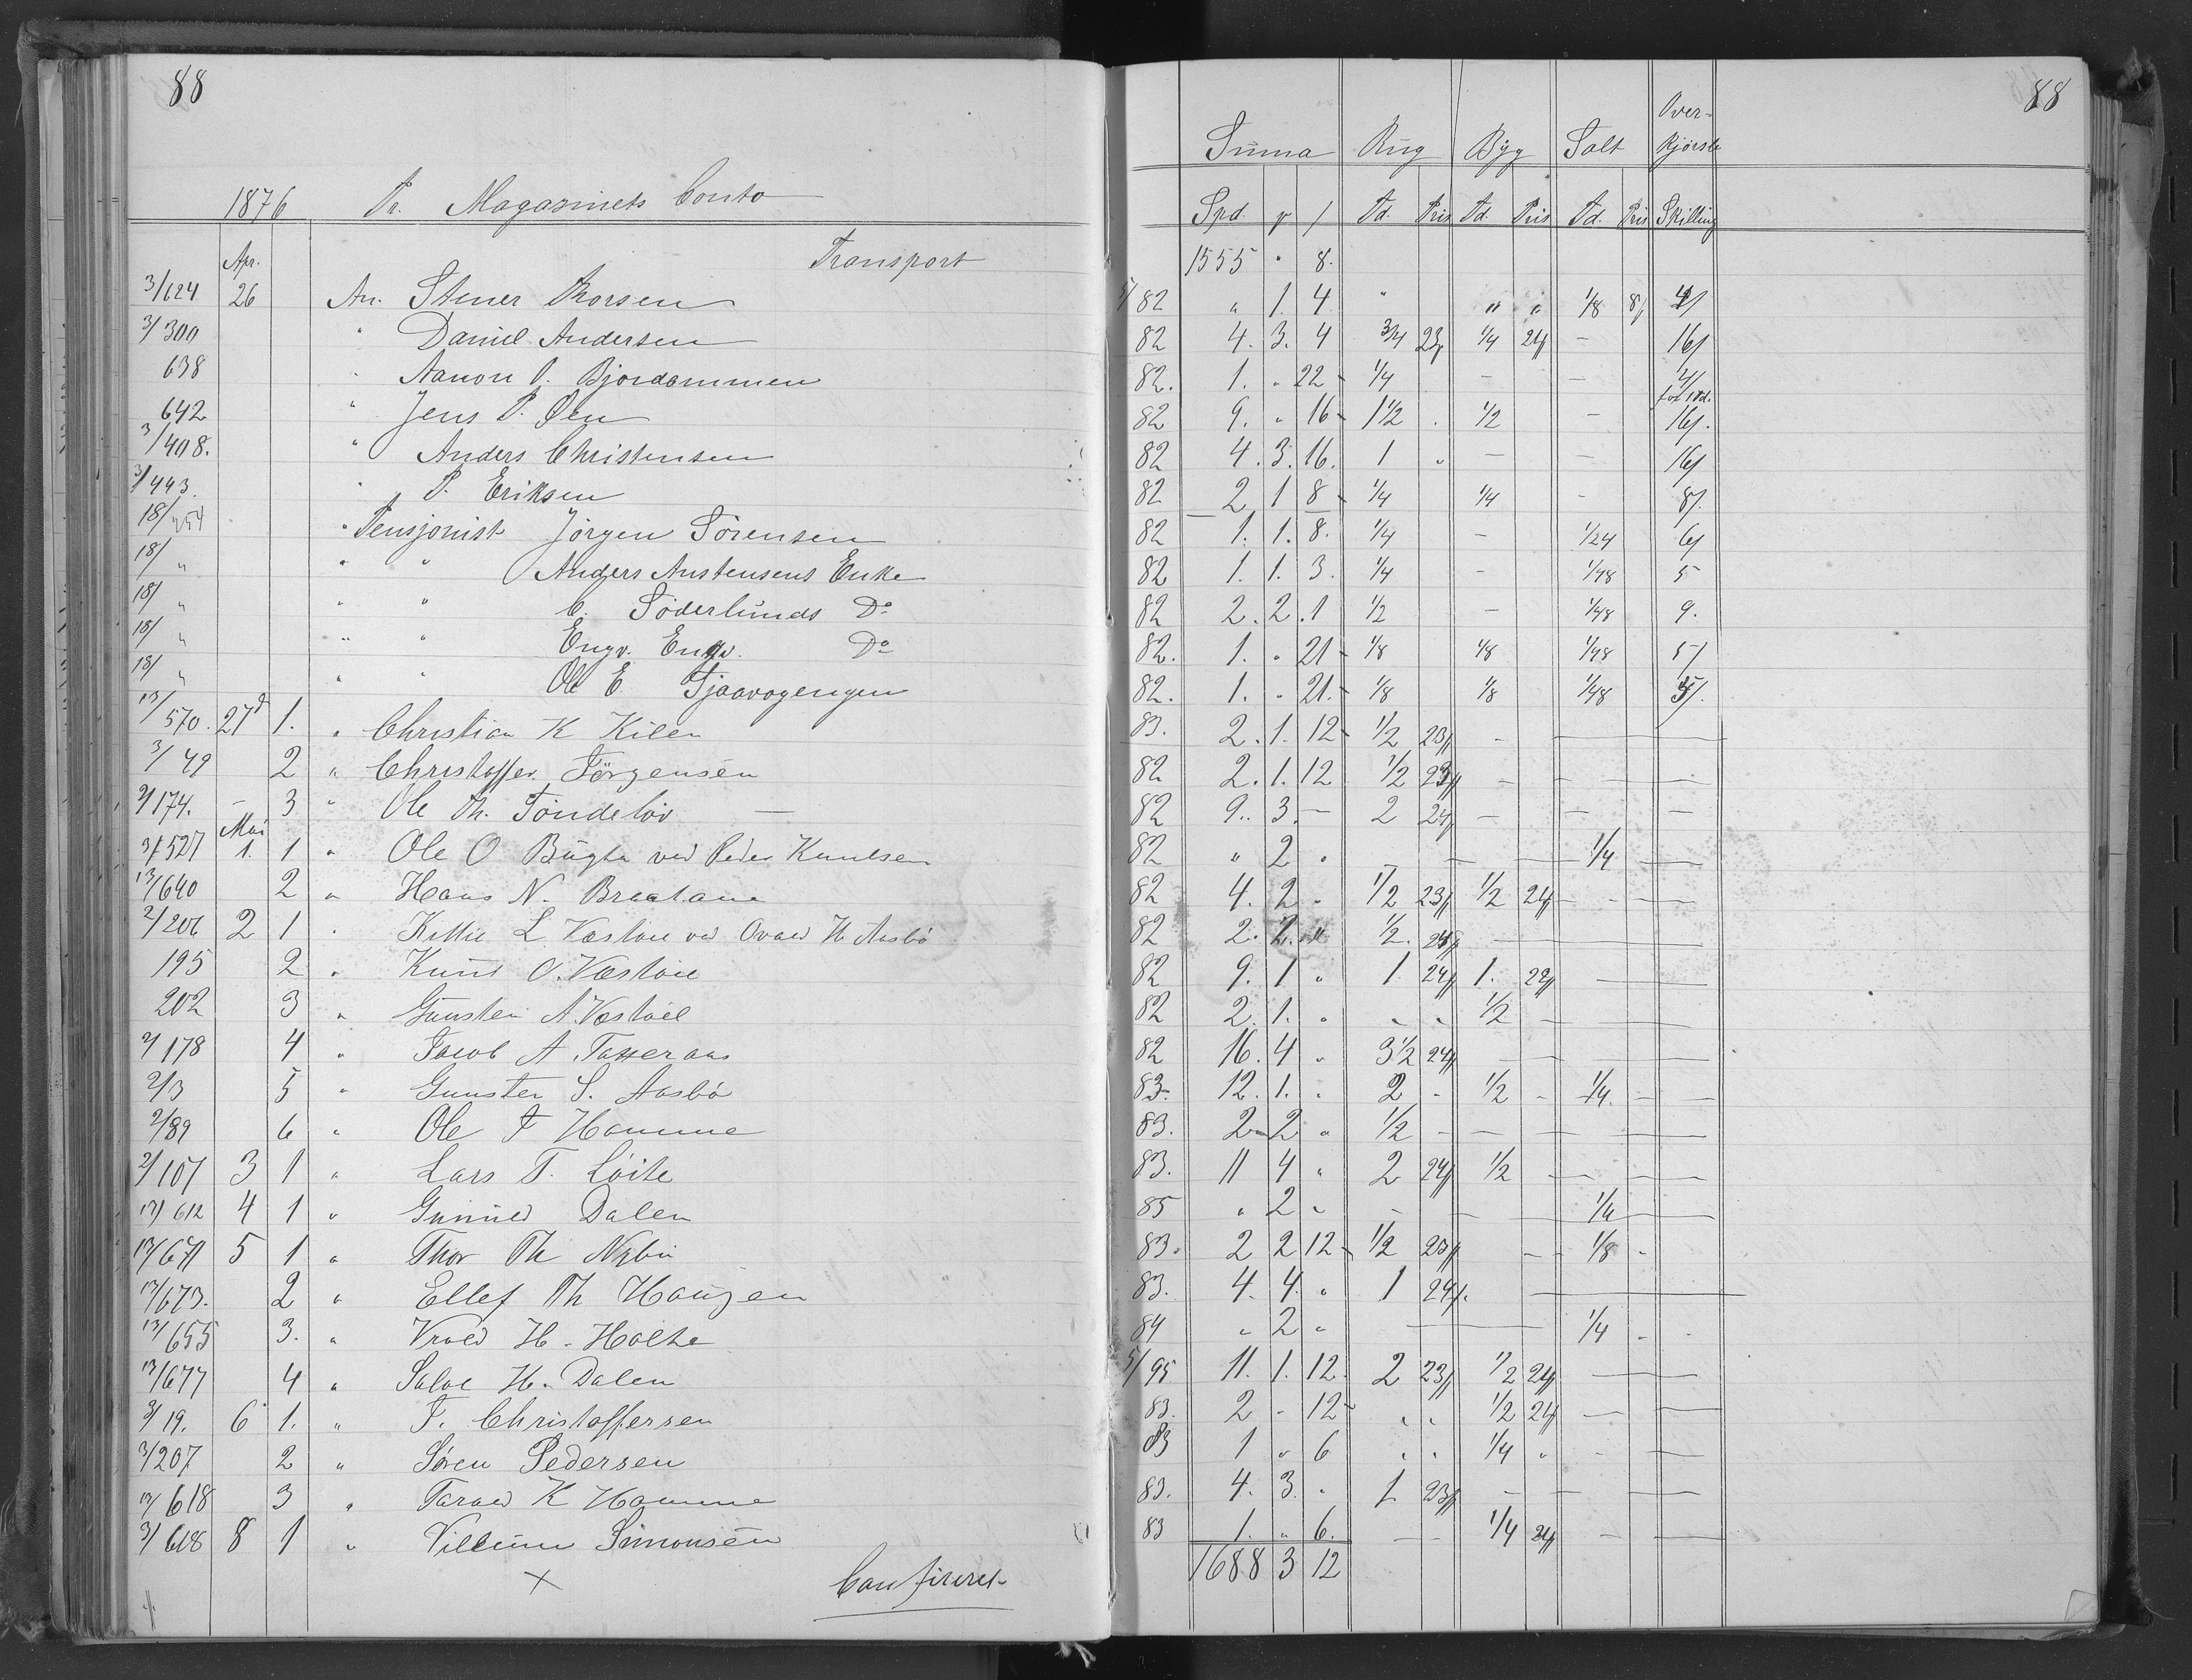 88
88
Over-
Suma Rug Byg Salt Kjørsle
1876 Pr. Magasinets Conto
Spd. Td. Pris Td. Pris Td. Pris Skilling
Apr. Transport 1555 " 8.
3/624 26 An. Stener Thorsen 5/82 " 1. 4. " " " 1/8 8/ 4/
3/300 " Daniel Andersen 82 4. 3. 4 3/4 23/ 1/4 24/ - 16/
638 " Aanon O. Bjordammen 82. 1. " 22 - 1/4 - - 4/
642 " Jens P. Øen 82 9. " 16 - 1 1/2 . 1/2 - 16/.
3/408. " Anders Christensen 82 4. 3. 16. 1 " - - 16/
3/443. " P. Eriksen 82 2 1 8 - 1/4 1/4 - 8/.
18/454 " Pensjonist Jörgen Sörensen 82 1. 1. 8. 1/4 - 1/24 6/
18/" " " Anders Anstensens Enke 82 1. 1. 3. 1/4 - 1/48 5
18/" " " C. Söderlunds Do 82 2. 2. 1 1/2 - 1/48 9.
18/" " " Engv. Do 82. 1. " 21 - 1/8 1/8 1/48 5/
18/" " " Ole E. Tjaavogengen 82. 1. " 21. - 1/8 1/8 1/48 5/.
13/570. 27d 1. " Christian K Kilen 83. 2. 1. 12 - 1/2 23/ -
3/49 2 " Christoffer Jörgensen 82 2. 1. 12 1/2 23/ - - - -
2/174. - 3 " Ole Th. Töndelöv 82 9. 3. - 2 24/ - - - -
Mai
3/527 1. 1 " Ole O Bugta ved Peder Knudsen 82 " 2 " - - - 1/4 -
13/640 2 " Hans N. Braatane 82 4. 2 " 1/2 23/ 1/2 24/ - - -
2/206 2 1 " Kittil L Væstøll ved Ovald H Aasbö 82 2. 2. " 1/2. 24/ -
195 2 " Knud O. Væstöll 82 9. 1 " 1. 24/ 1. 24/ -
202 3 " Gunsten A. Væstöll 82 2. 1. " " " 1/2 -
2/178 4 " Jacob A. Tasseraas 82 16. 4 " 3 1/2 24/ - - -
2/3 5 " Gunsten S. Aasbö 83. 12. 1. " 2 - 1/2 - 1/4. - -
2/89 6 " Ole T Hamme 83. 2 - 2 " 1/2 - - - -
2/107 3 1 " Lars T. Löite 83. 11 4 " 2 24/ 1/2 - - -
13/612 4 1 " Gunuld Dalen 85 " 2 " - - - 1/4 -
13/671 5 1 " Thor Th Nybu 83. 2 2 12 - 1/2 23/ - - 1/8 -
13/673. 2 " Ellef Th Haugen 83. 4. 4. " 1 24/. -
13/655 3. " Vrald H. Holte 84 " 2 " - - 1/4 - .
13/677 4 " Salve H. Dalen 5/95 11. 1. 12. 2 23/ 1/2 24/ - -
3/19. 6 1. " J. Christoffersen 83. 2 - 12 - " " 1/2 24/ - -
3/207 2 " Sören Pedersen 83 1 " 6 " " 1/4 " - -
13/618 3 " Tarald K Hamme 83. 4. 3. " 1 23/ - - -
3/618 8 1 " Villum Simonsen 83 1. " 6. - - 1/4 24/ - -
1688 3 12